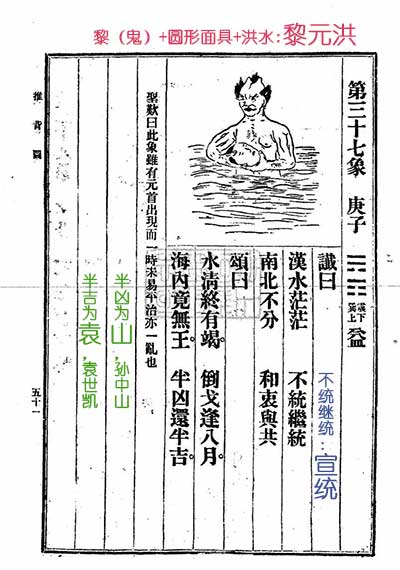 黎（鬼）+圆形面具+洪水:黎元洪
第三十七象 庚子 震下巽上 益
讖曰
漢水茫茫 不統繼統
南北不分 和衷與共
頌曰
水清終有竭。 倒戈逢八月。
海內竟無王。 半凶還半吉。
聖歎曰此象雖有元首出現而一時未易平治亦一亂也
不统继统：宣统
半凶为山,孙中山
半吉为袁,袁世凯
推背圖
五十一